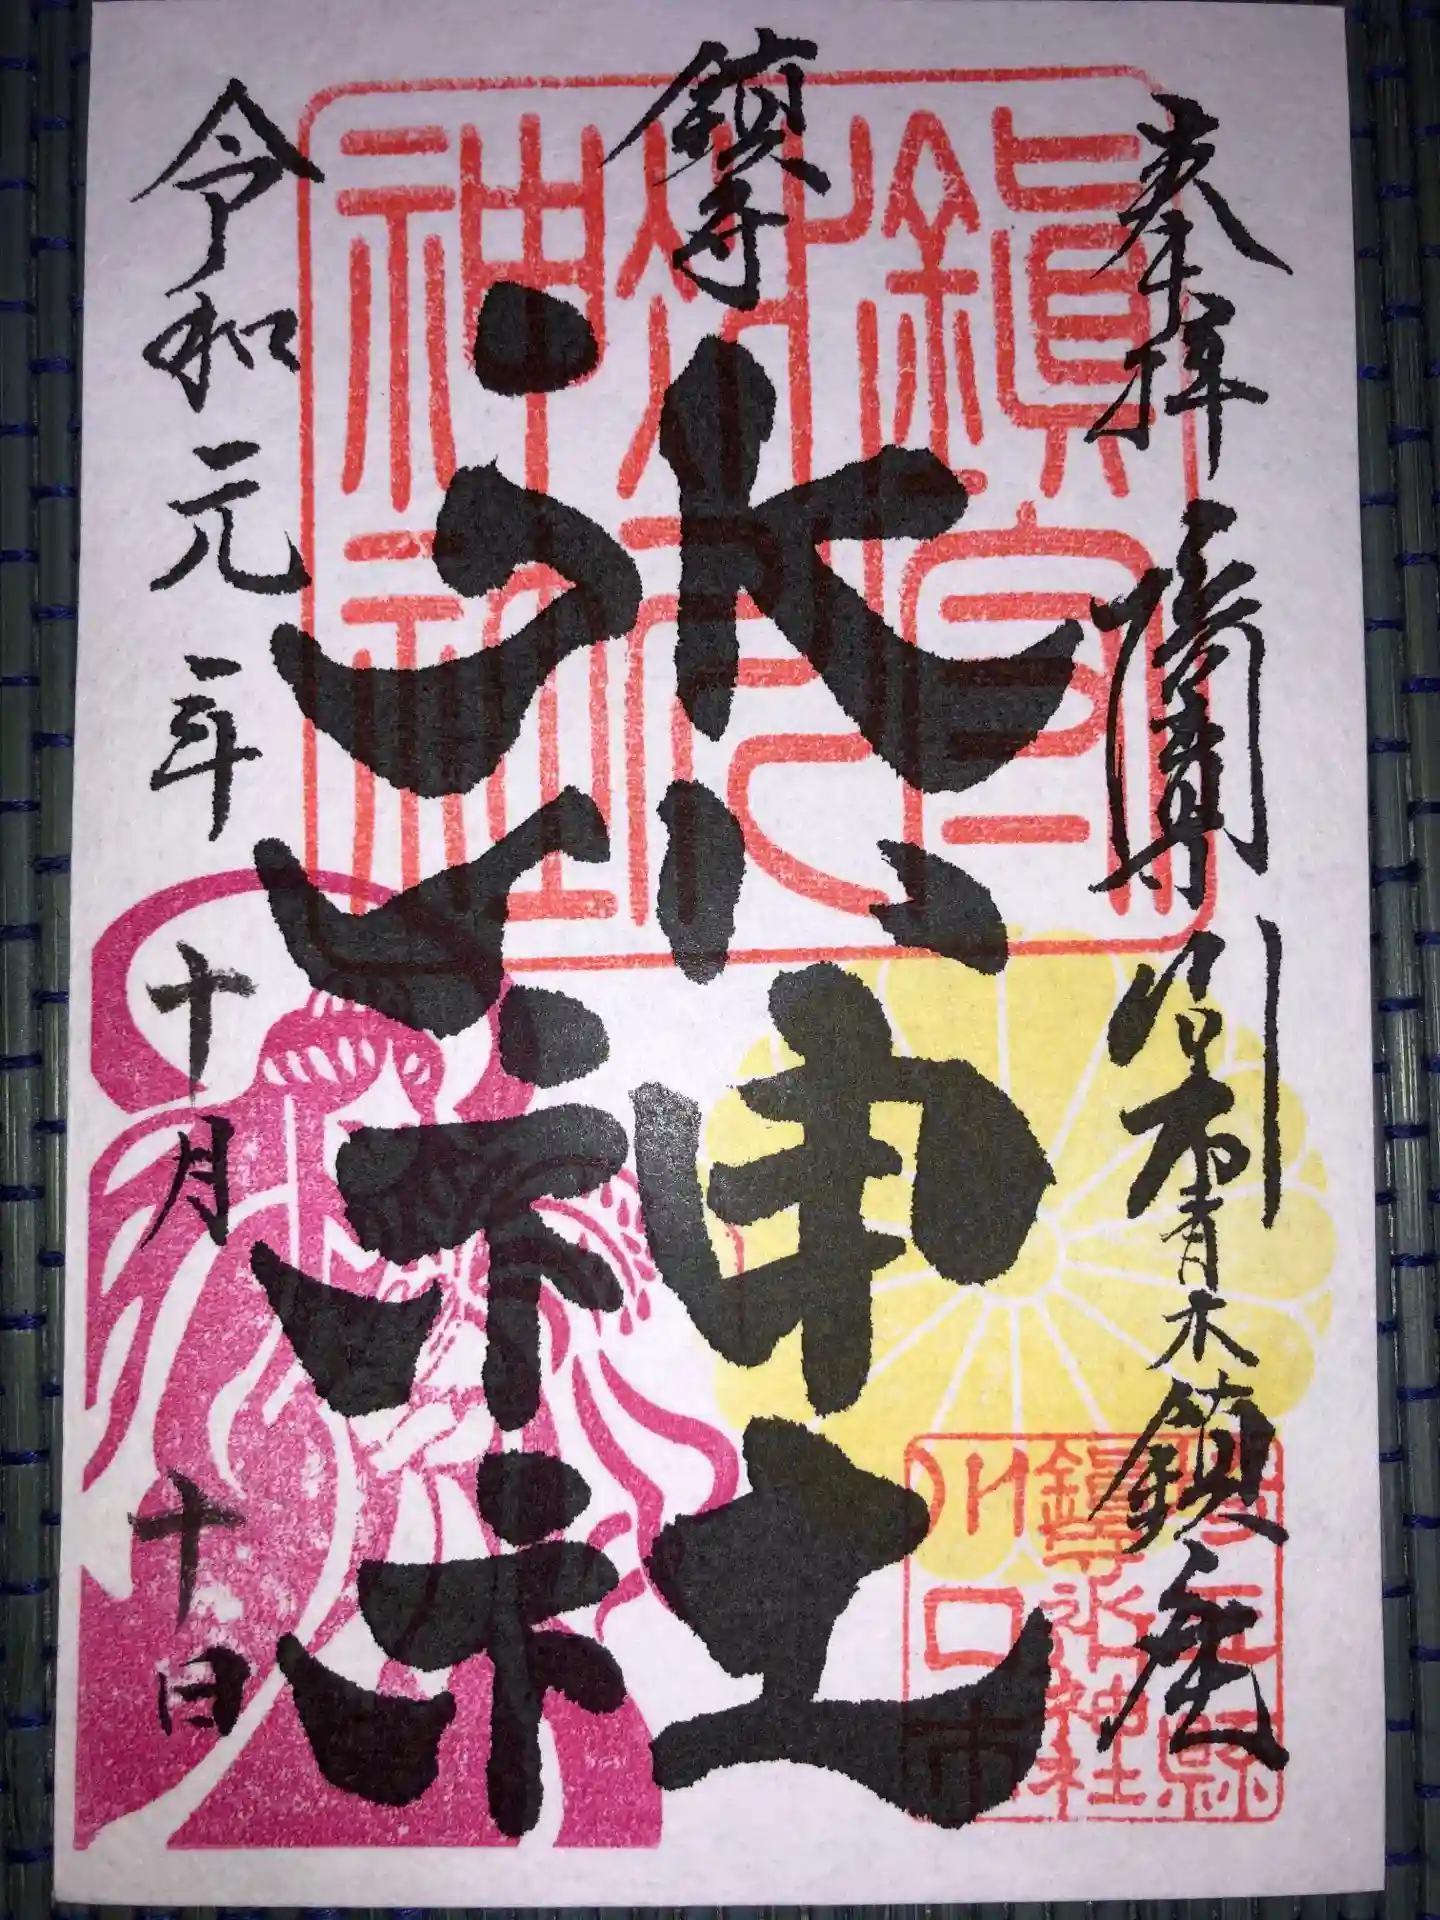 奉拝
川口市青木鎮座
鎮守
氷川神社
令和元年十月十日
神社
埼玉縣
鎮守氷川神社
川口市